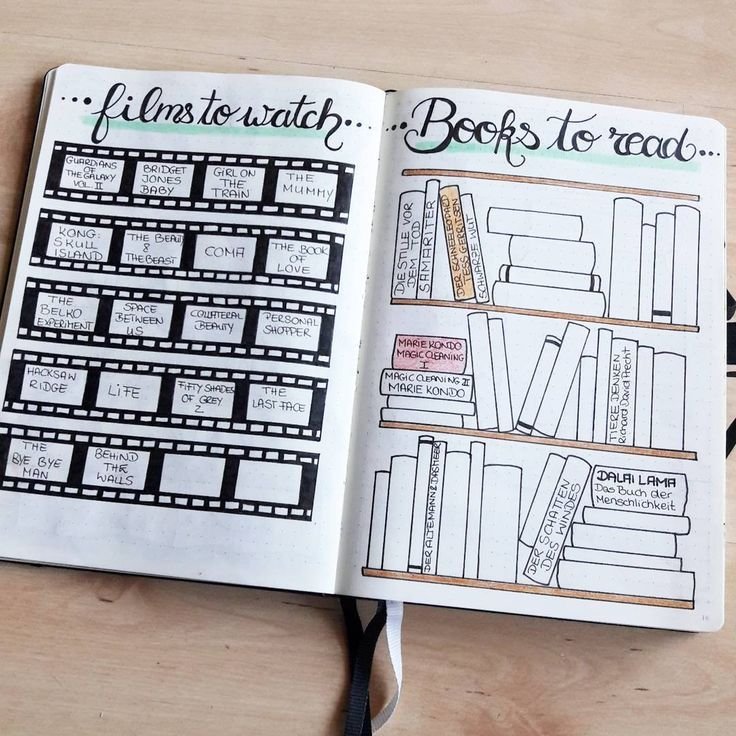 ...films to watch...
GUARDIANS
OF
THE GALAXY
VOL. II
BRIDGET
JONES
BABY
GIRL ON
THE
TRAIN
THE
MUMMY
KONG:
SKULL
ISLAND
THE BEAUTY
&
THE BEAST
COMA
THE BOOK
OF
LOVE
THE
BELKO
EXPERIMENT
SPACE
BETWEEN
US
COLLATERAL
BEAUTY
PERSONAL
SHOPPER
HACKSAW
RIDGE
LiFE
FIFTY SHADES
OF GREY
2
THE
LAST FACE
THE
BYE BYE
MAN
BEHIND
THE
WALLS
...Books to read...
DIE STILLE VOR
DEM TOD
SAMARITER
DER SCHNEELEOPARD
TESS GERRITSEN
SCHWARZE WUT
MARIE KONDO
MAGIC CLEANING
I
MAGIC CLEANING II
MARIE KONDO
TIERE DENKEN
Richard David Precht
DER ALTE MANN & DAS MEER
DER SCHATTEN
DES WINDES
DALAI LAMA
Das Buch der
Menschlichkeit